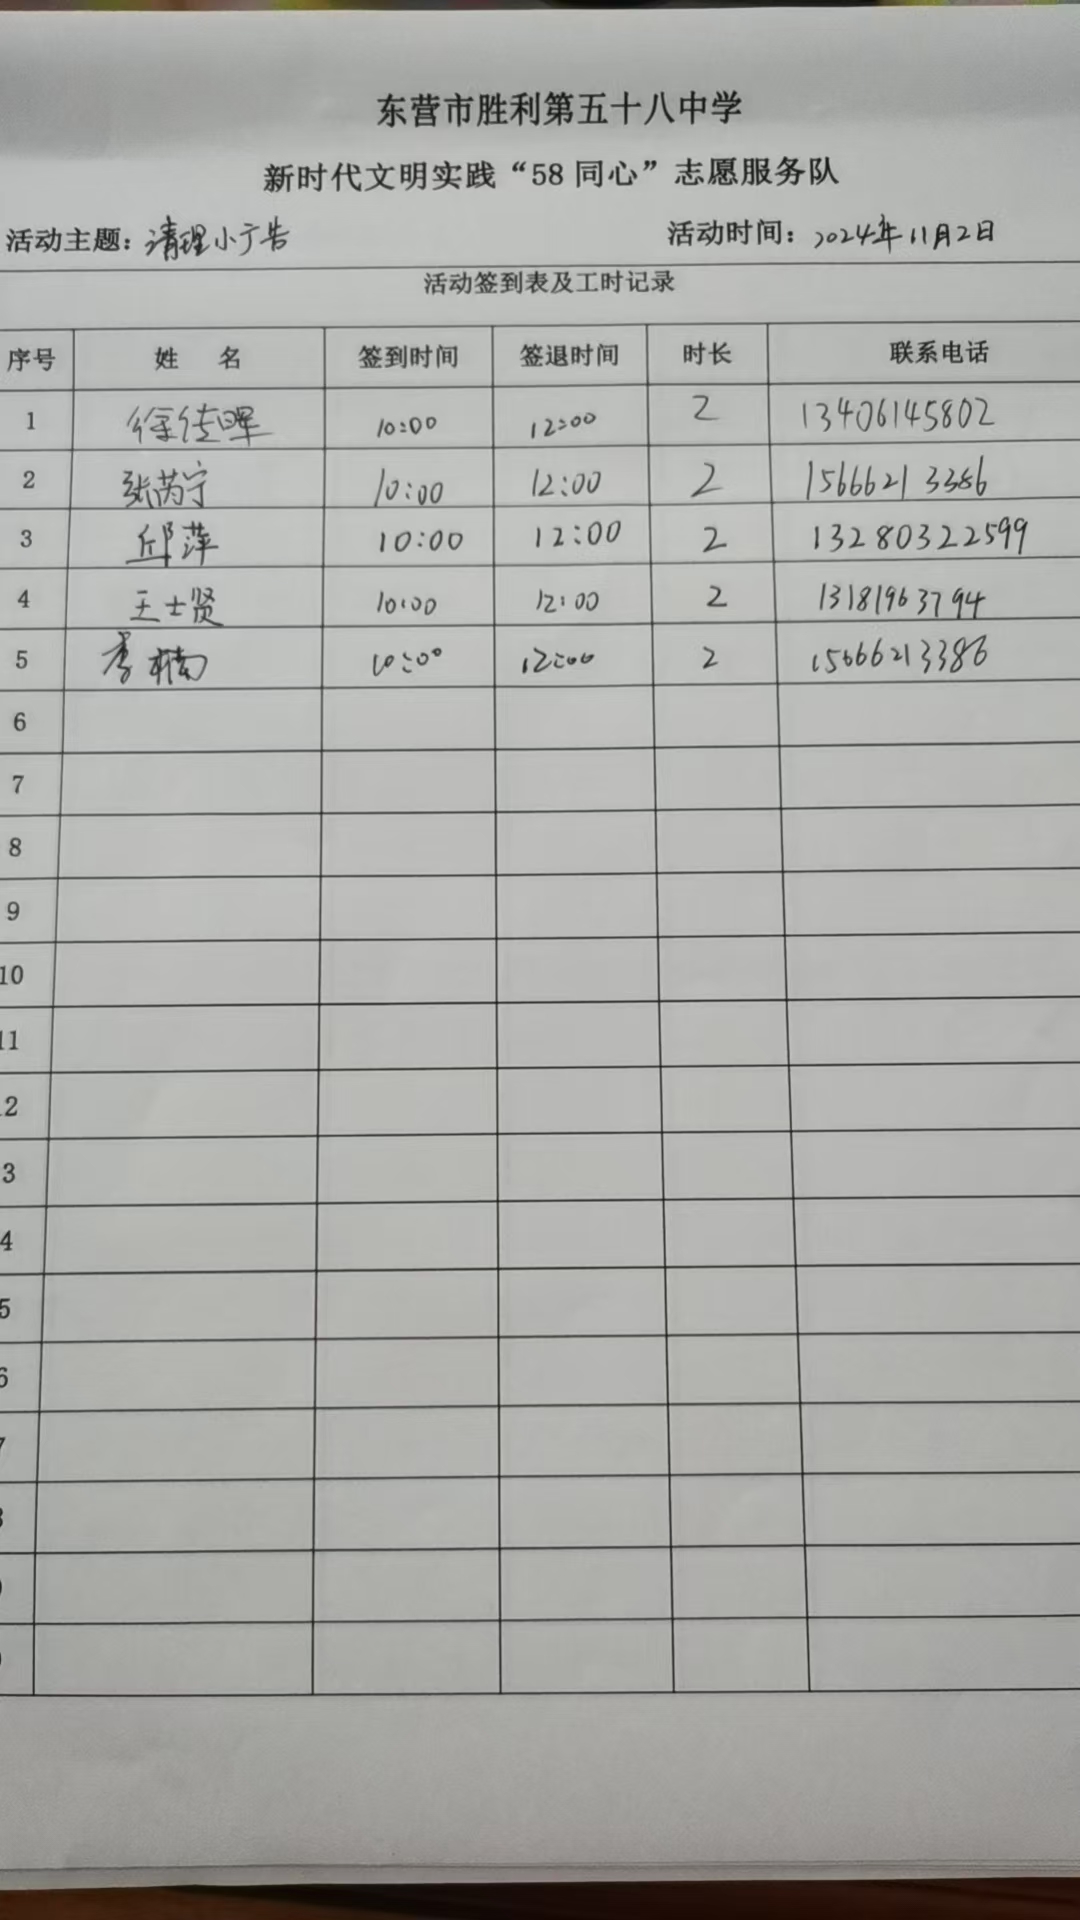 东营市胜利第五十八中学
新时代文明实践“58同心”志愿服务队
活动主题：清理小广告 活动时间：2024年11月2日
活动签到表及工时记录
序号 姓 名 签到时间 签退时间 时长 联系电话
1 徐传晖 10:00 12:00 2 13406145802
2 张芮宁 10:00 12:00 2 15666213386
3 邱萍 10:00 12:00 2 13280322599
4 王士贤 10:00 12:00 2 13181963794
5 李楠 10:00 12:00 2 15666213386
6
7
8
9
10
11
2
3
4
5
6
7
8